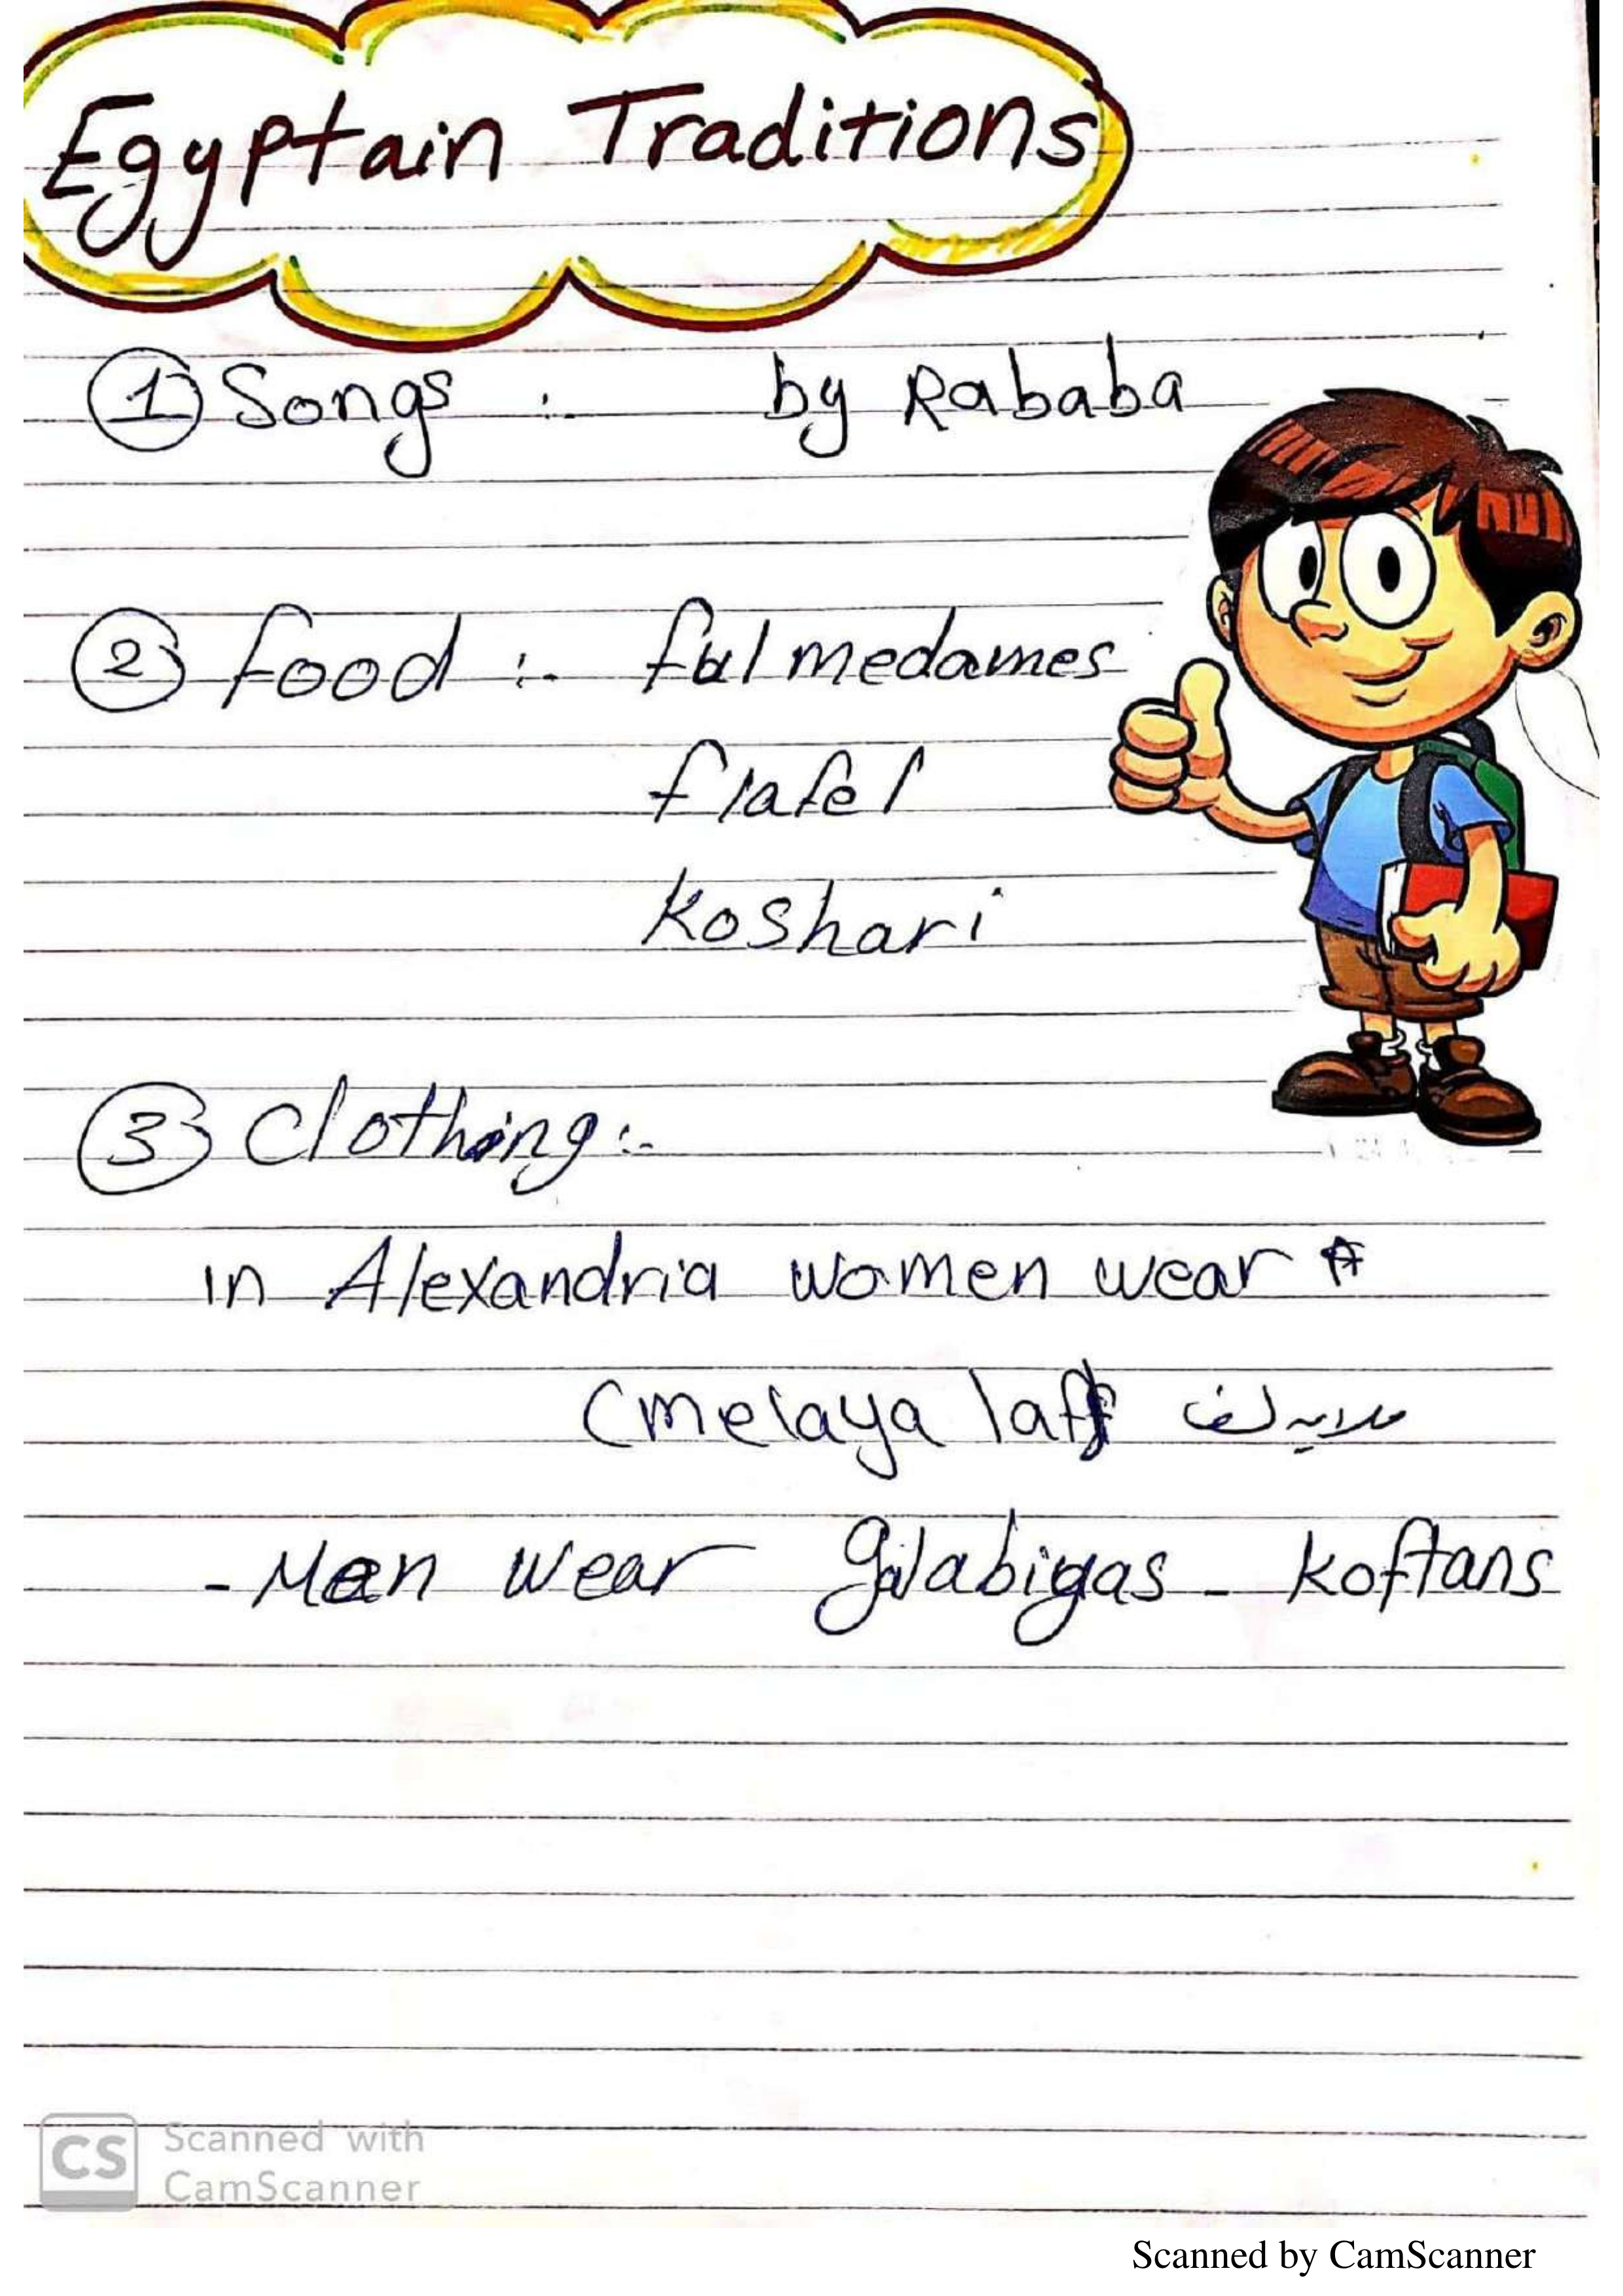 Egyptain Traditions
1 Songs :- by Rababa
2 food :- ful medames
flafel
Koshari
3 Clothing :-
in Alexandria women wear A
(melaya laff ملايه لف
- Men wear galabigas - koftans
CS Scanned with
CamScanner
Scanned by CamScanner